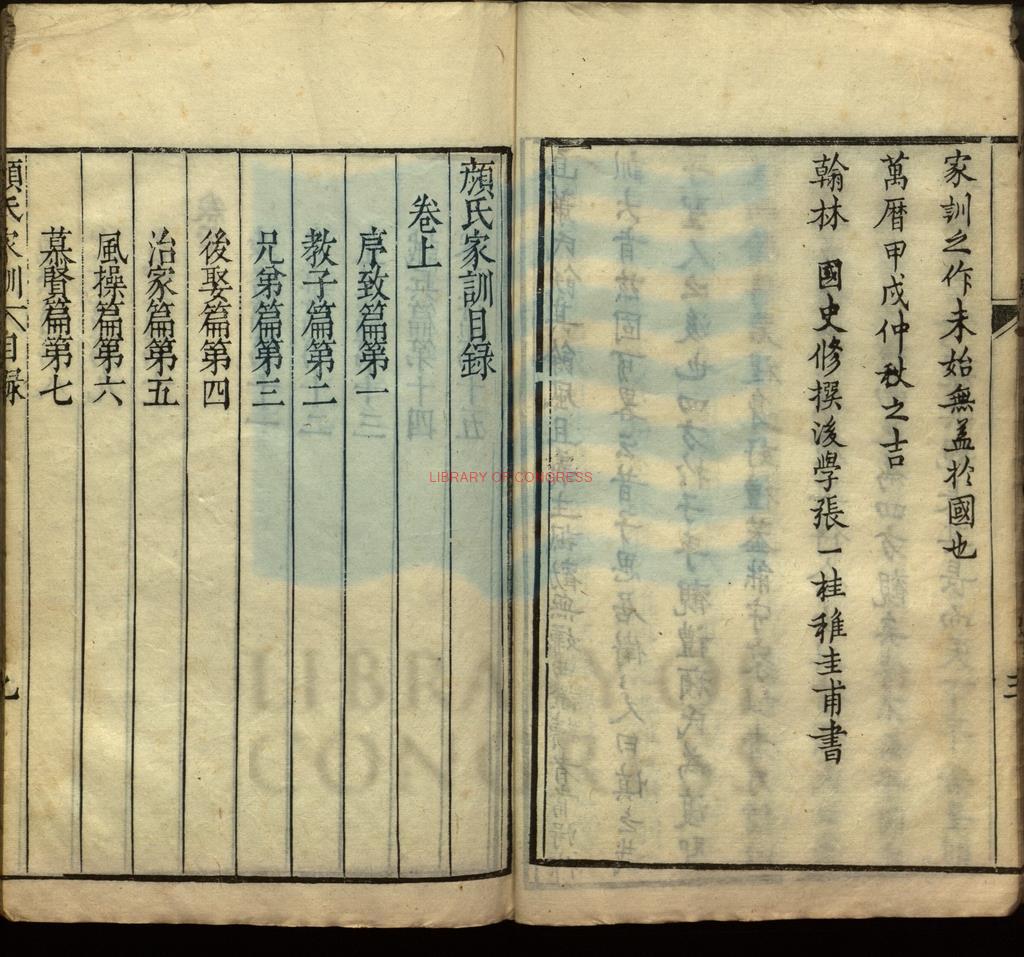 家訓之作未始無益於國也
萬曆甲戌仲秋之吉
翰林 國史修撰後學張一桂稚圭甫書
顏氏家訓目錄
卷上
序致篇第一
教子篇第二
兄弟篇第三
後娶篇第四
治家篇第五
風操篇第六
慕賢篇第七
顏氏家訓 目録
LIBRARY OF CONGRESS